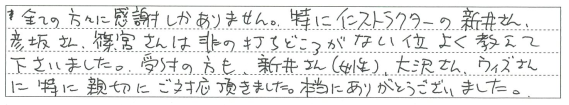 * 全ての方々に感謝しかありません。特にインストラクターの新井さん、
彦坂さん、篠宮さんは非の打ちどころがない位よく教えて
下さいました。受付の方も、新井さん(女性)、大沢さん、ウィズさん
に特に親切にご対応頂きました。本当にありがとうございました。